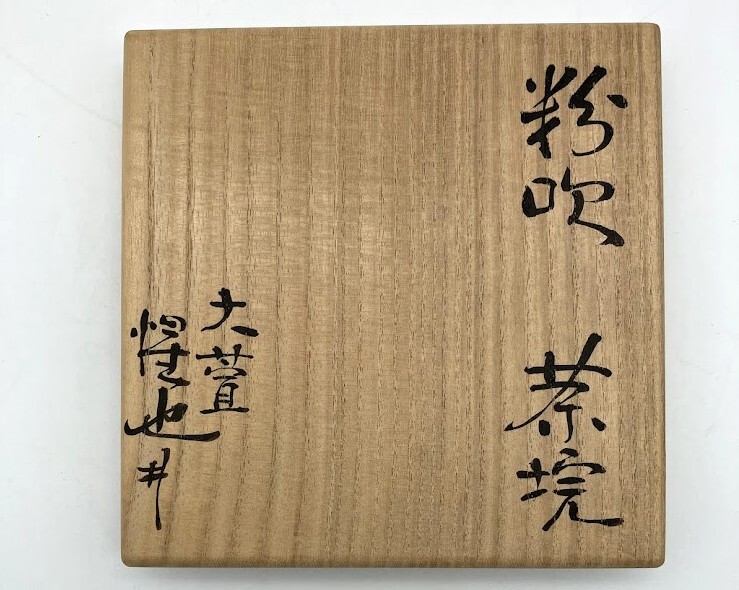 粉吹 茶垸
大萱
也